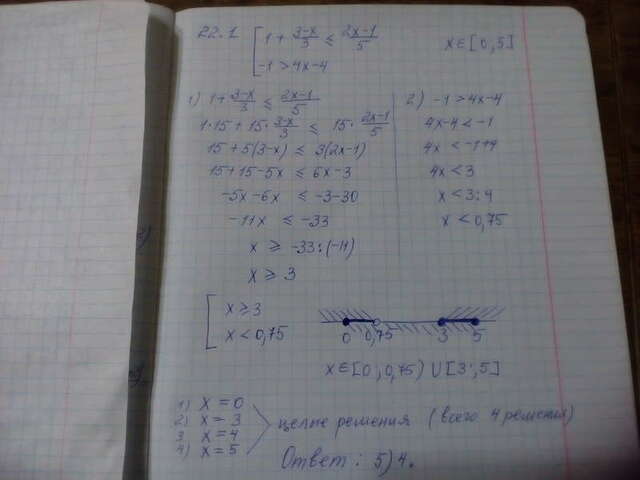 22.1 [ 1 + (3-x)/3 ≤ (2x-1)/5
-1 > 4x-4
x ∈ [0, 5]
1) 1 + (3-x)/3 ≤ (2x-1)/5
1·15 + 15·(3-x)/3 ≤ 15·(2x-1)/5
15 + 5(3-x) ≤ 3(2x-1)
15+15-5x ≤ 6x-3
-5x-6x ≤ -3-30
-11x ≤ -33
x ≥ -33:(-11)
x ≥ 3
2) -1 > 4x-4
4x-4 < -1
4x < -1+4
4x < 3
x < 3:4
x < 0,75
[ x ≥ 3
x < 0,75
0 0,75 3 5
x ∈ [0; 0,75) U [3; 5]
1) x = 0
2) x = 3
3 x = 4
4) x = 5
целые решения (всего 4 решения)
Ответ: 5) 4.